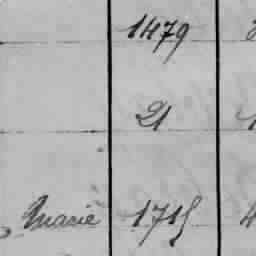 1479
21
Marie 1715